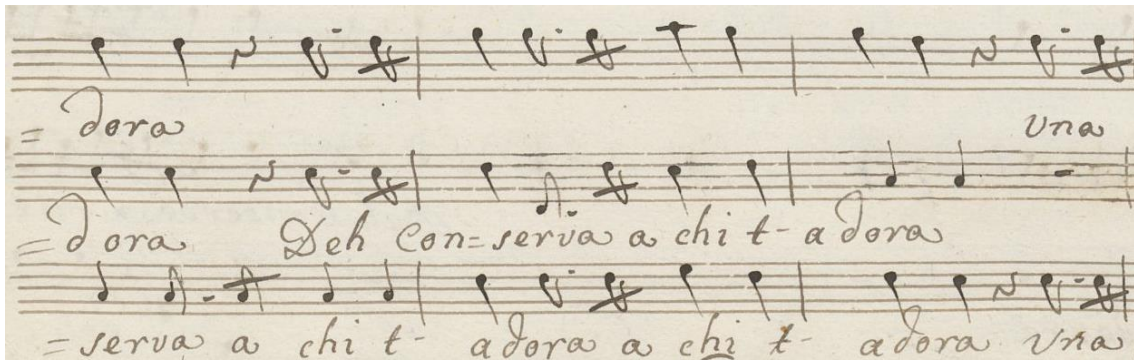 = dora Una
= dora Deh con= serva a chi t- a dora
= serva a chi t- adora a chi t- adora Una